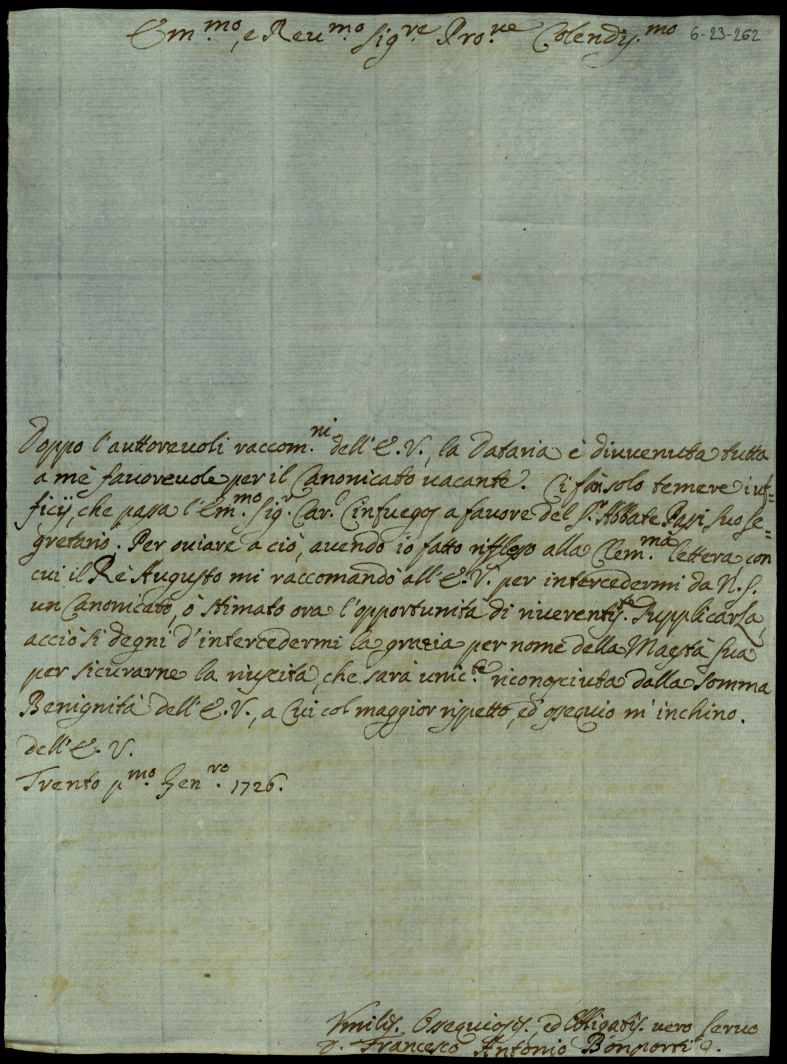 Em.mo, e Reu.mo Sig.re Pro.ne Colendis.mo 6-23-262
Doppo l'auttoreuoli raccom.ni dell'E.V., la Dataria è diuuenuta tutta
a mè fauoreuole per il Canonicato uacante. Ci fà solo temere i uf-
ficij, che passa l'Em.mo Sig.r Car.l Cinfuegos a fauore del S.r Abbate Passi suo se-
gretario. Per ouiare a ciò, auendo io fatto riflesso alla Clem.ma lettera con
cui il Rè Augusto mi raccomandò all'E.V. per intercedermi da N.S.
un Canonicato, ò stimato ora l'opportunità di riuerentis.te supplicarla,
acciò si degni d'intercedermi la grazia per nome della Maestà Sua
per sicurarne la riuscita, che sarà unic.te riconosciuta dalla somma
Benignità dell'E.V., a cui col maggior rispetto, ed ossequio m'inchino.
dell'E.V.
Trento p.mo Gen.ro 1726.
Vmilis. Ossequiosis. ed Obligatis. uero seruo
Francesco Antonio Bonporti